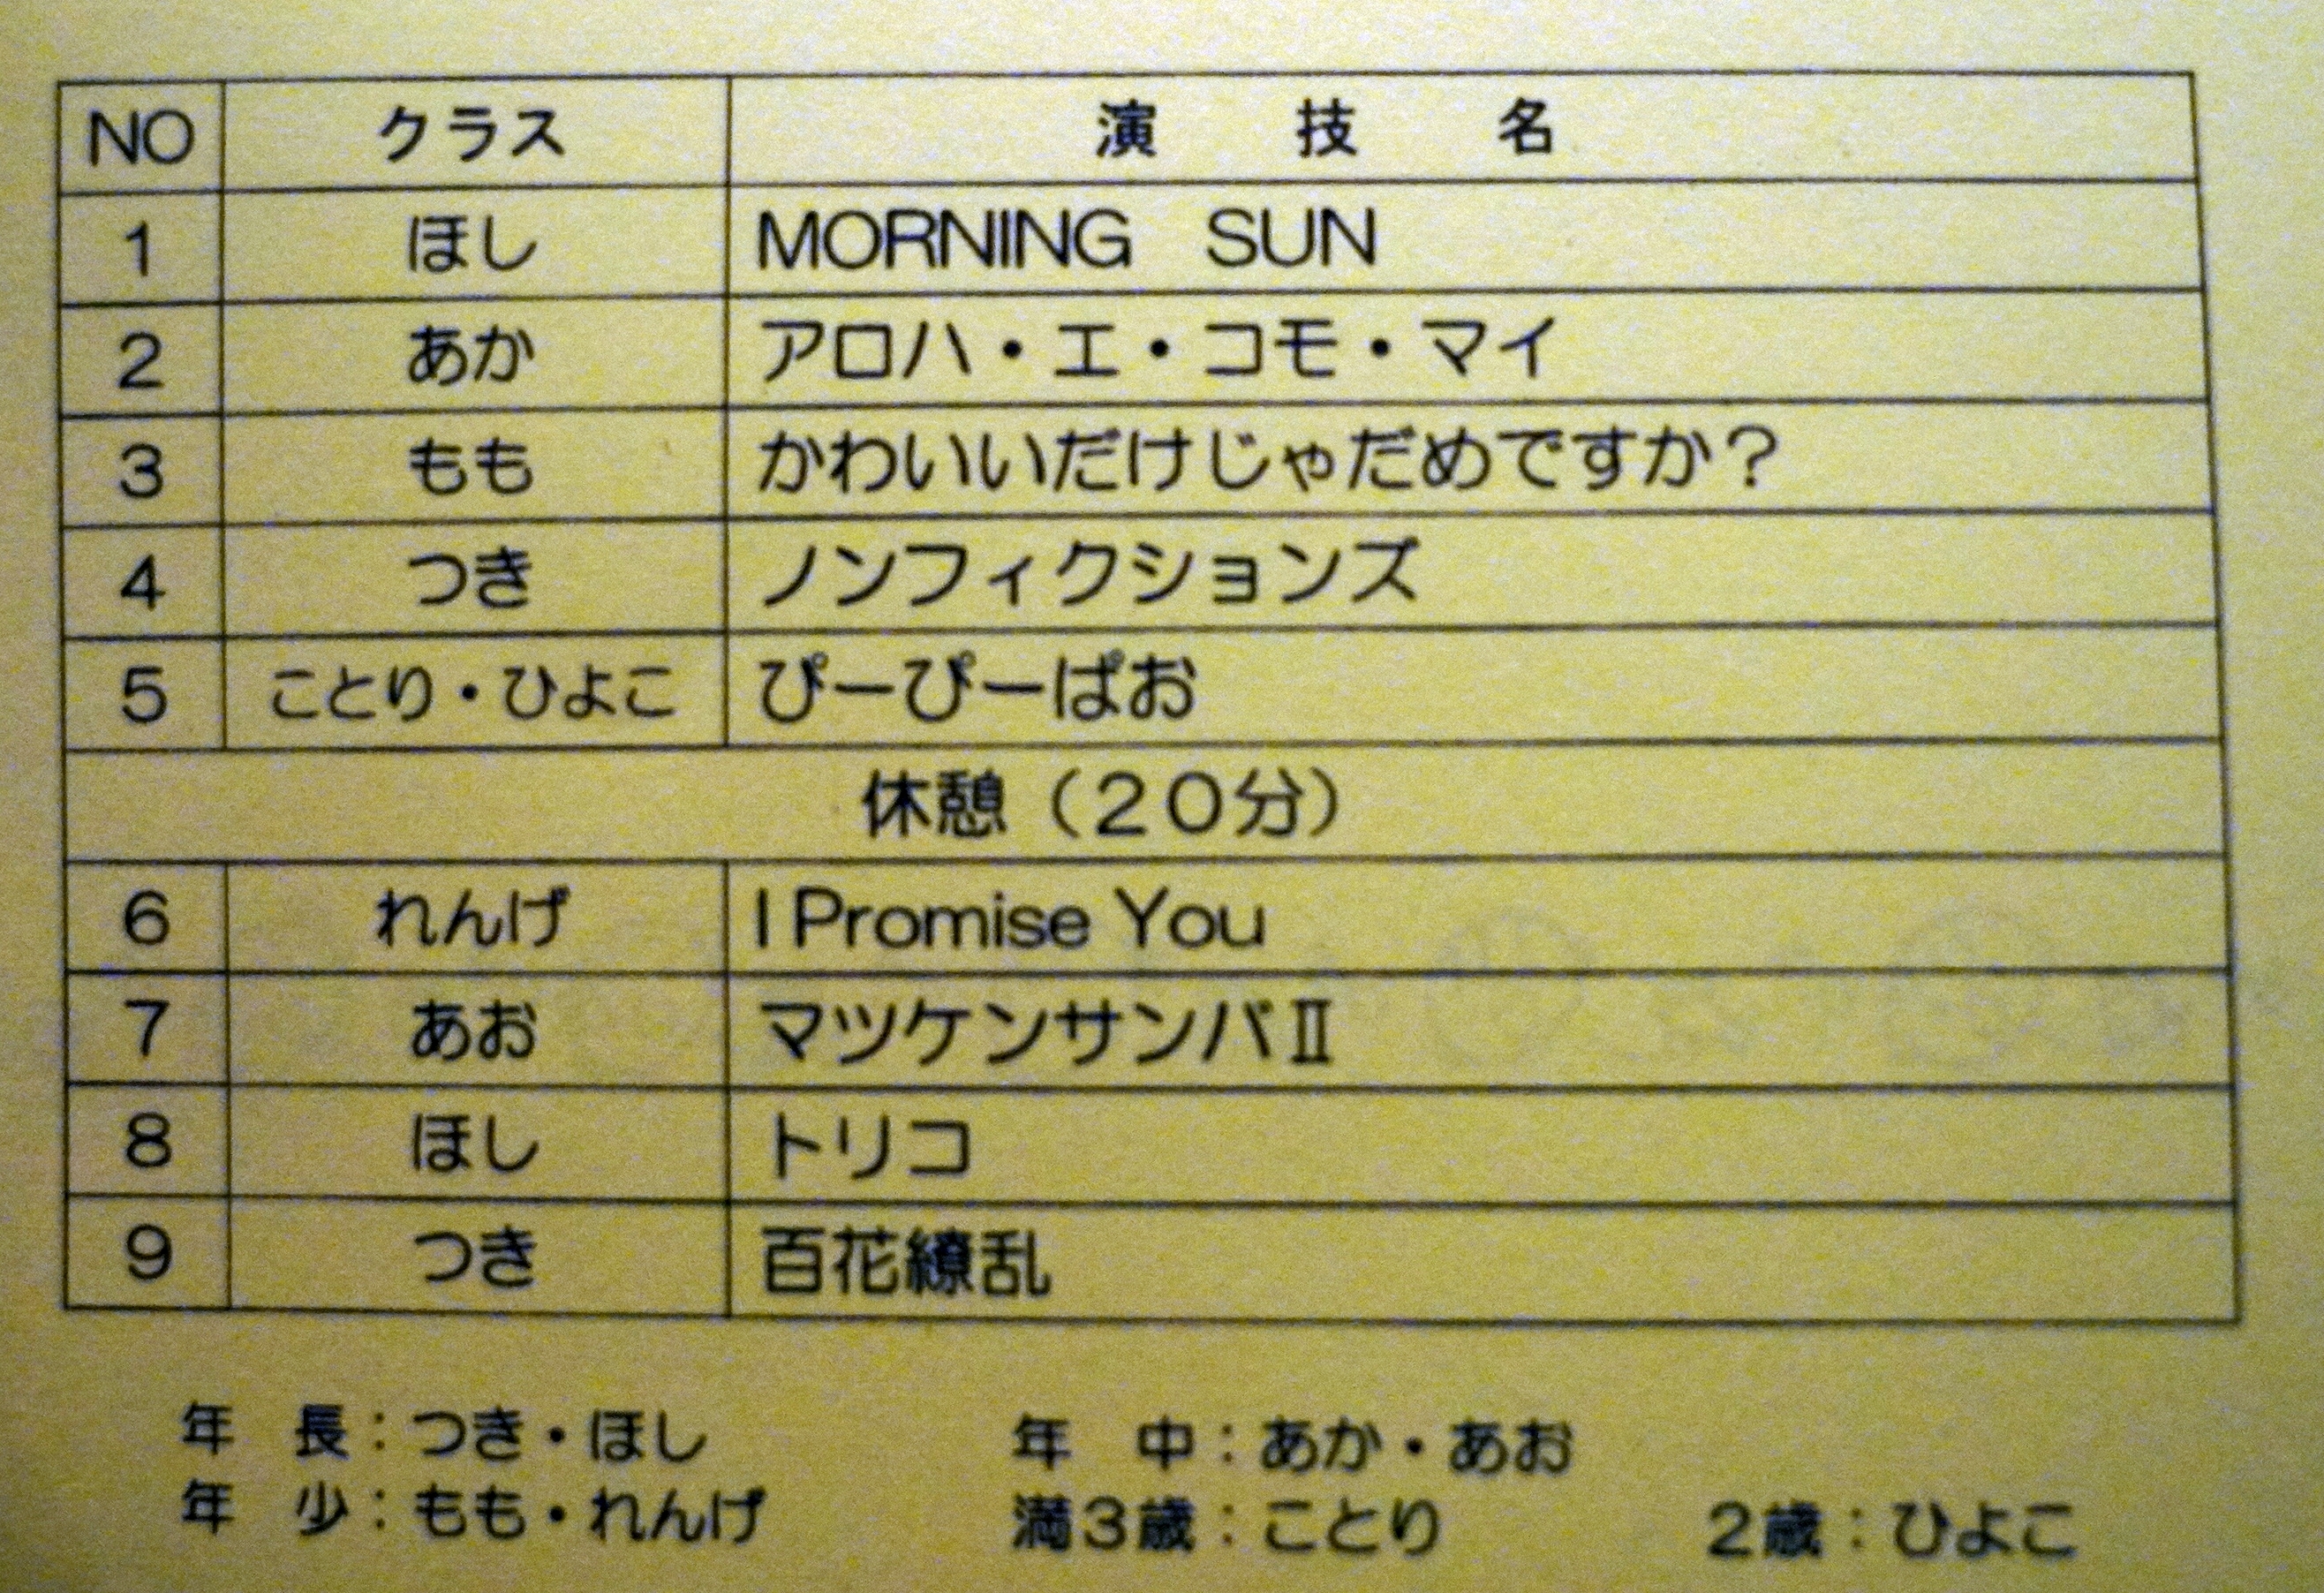 NO クラス 演 技 名
1 ほし MORNING SUN
2 あか アロハ・エ・コモ・マイ
3 もも かわいいだけじゃだめですか？
4 つき ノンフィクションズ
5 ことり・ひよこ ぴーぴーぱお
休憩（２０分）
6 れんげ I Promise You
7 あお マツケンサンバⅡ
8 ほし トリコ
9 つき 百花繚乱
年 長：つき・ほし 年 中：あか・あお
年 少：もも・れんげ 満３歳：ことり ２歳：ひよこ